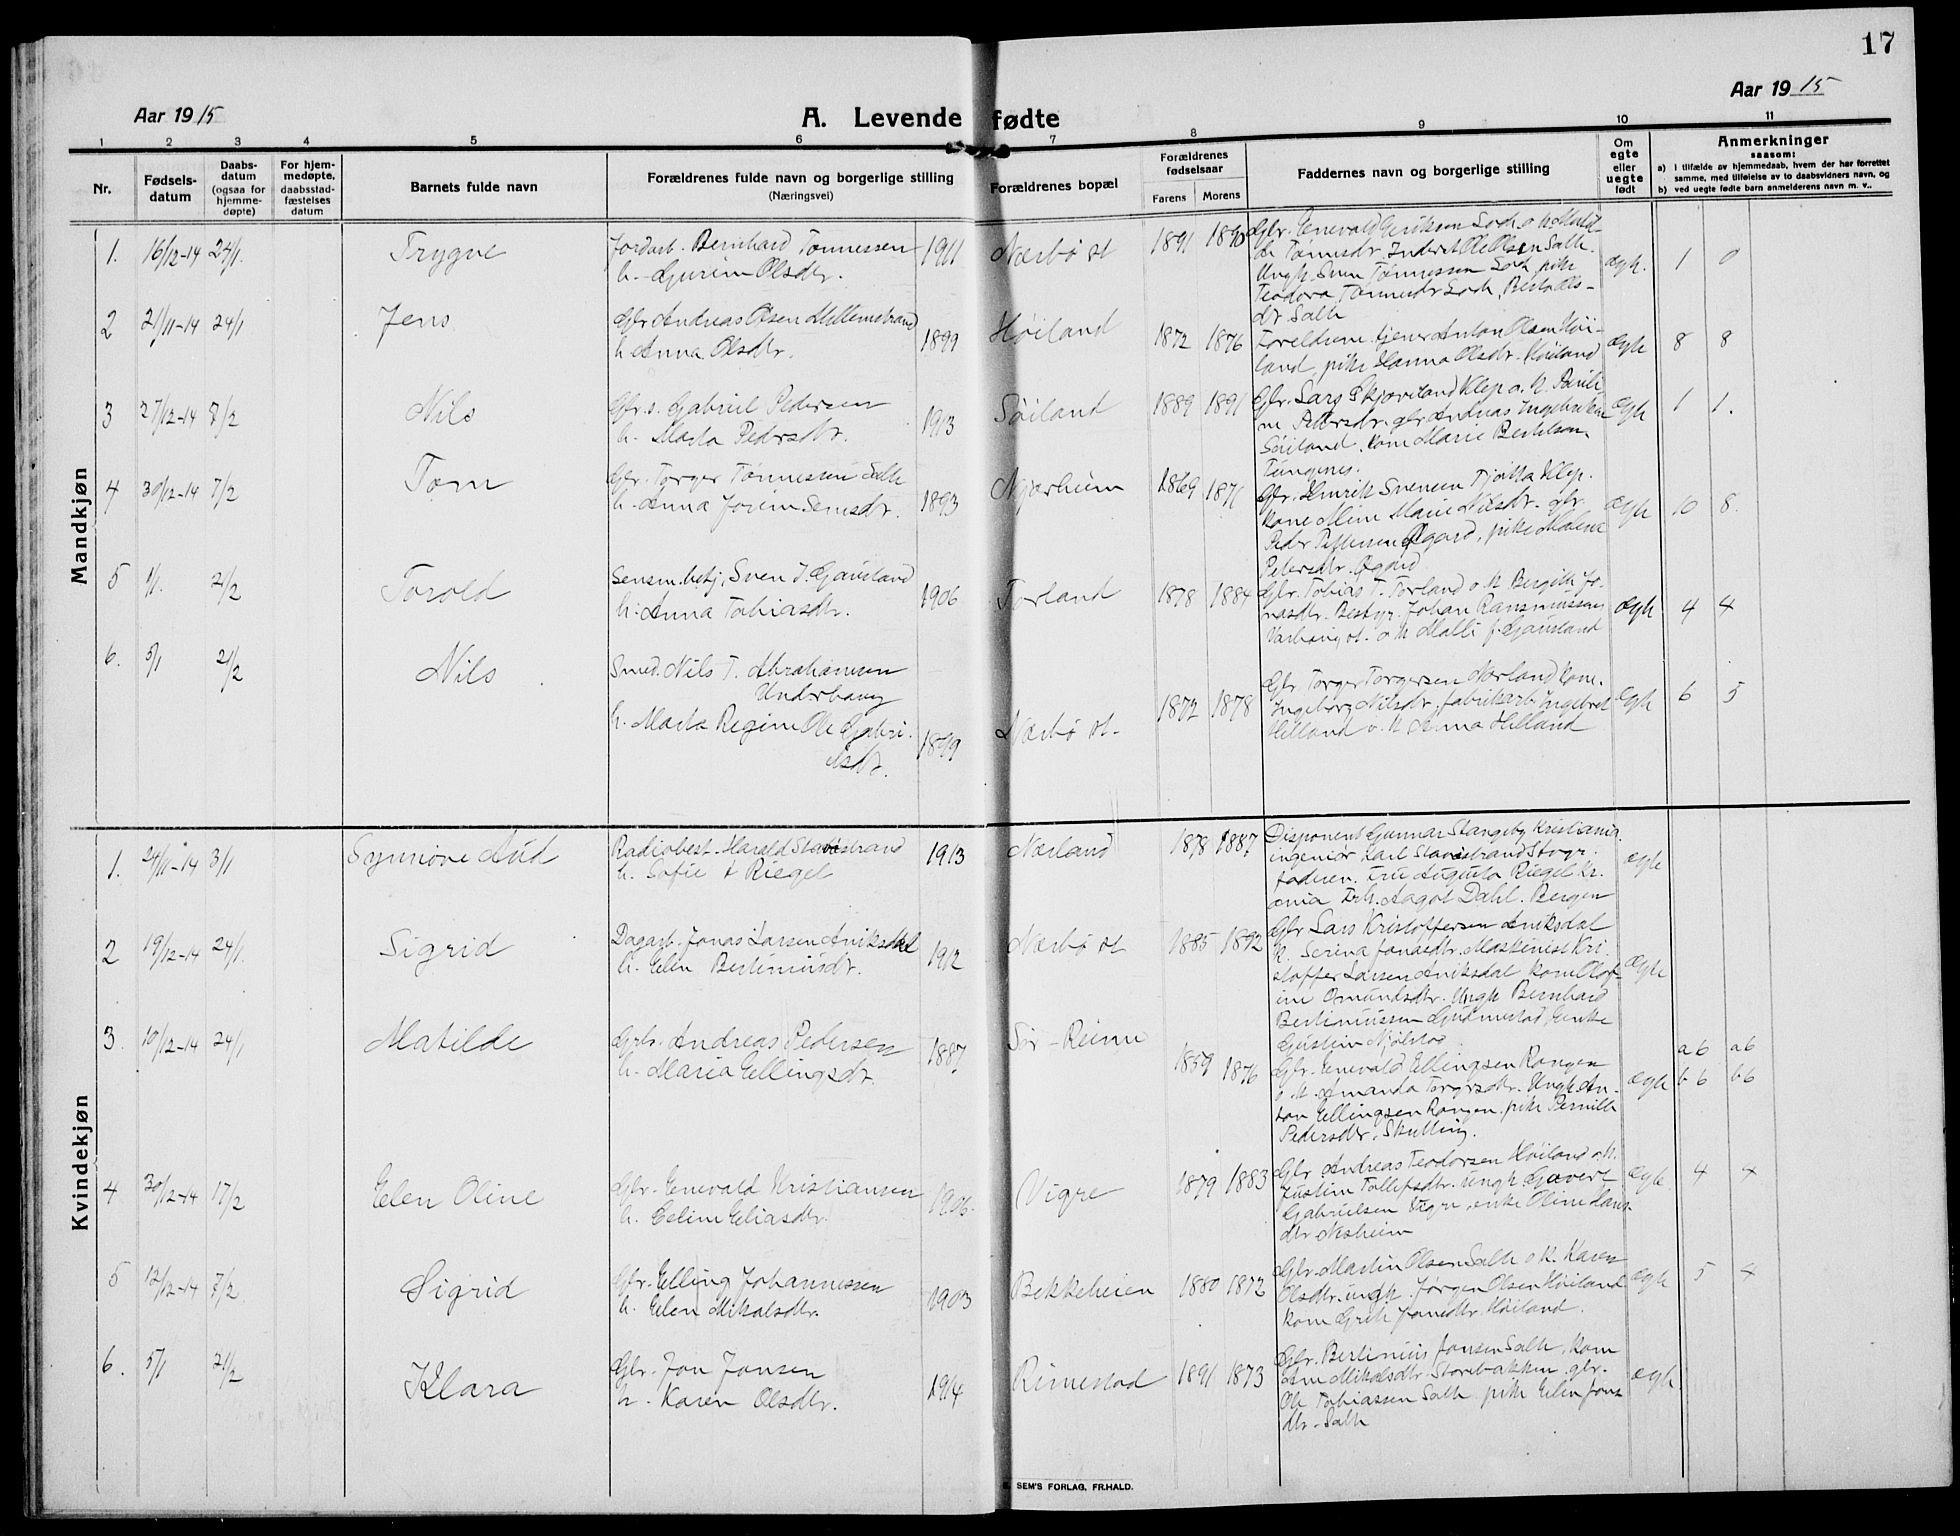 17
Aar 1915
Aar 1915
A. Levende fødte
1 2 3 4 5 6 7 8 9 10 11
Nr.
Fødsels-
datum
Daabs-
datum
(ogsaa for
hjemme-
døpte)
For hjem-
medøpte,
daabsstad-
fæstelses
datum
Barnets fulde navn
Forældrenes fulde navn og borgerlige stilling
(Næringsvei)
Forældrenes bopæl
Forældrenes
fødselsaar
Farens Morens
Faddernes navn og borgerlige stilling
Om
egte
eller
uegte
født
Anmerkninger
saasom:
a) i tilfælde av hjemmedaab, hvem der har forrettet
samme, med tilføielse av to daabsvidners navn, og
b) ved uegte fødte barn anmelderens navn m. v..
Mandkjøn
1. 16/12-14 24/1. Trygve
Jordarb. Bernhard Tønnessen
h. Gurine Olsdtr.
1911 Nærbø st 1891 1890
Glr. Enevald Eriksen
Tønnesdr. Ole Olsen Salte
Ungk. Sven Tønnessen pike
Teodora Tønnesdr
dr Salte
ægte. 1 0
2 21/11-14 24/1 Jens
Glr Andreas Olsen
h. Anna Olsdtr.
1899 Høiland 1872 1876
Foreldrene. tjener Anton Olsen Høi-
land, pike Hanna Olsdtr. Høiland
ægte 8 8
3 27/12-14 7/2 Nils
Gbr.s. Gabriel Pedersen
h. Marta Pedersdtr.
1913 Søiland 1889 1891
Glr. Lars Skjæveland Klep o. h. Pauli-
ne glr Andreas Ingebretsen
Søiland. kone Marie Bertelsen.
Tungenes.
ægte 1 1.
4 30/12-14 7/2 Tom
Glr. Torger Tønnessen Salte
h. Anna Jorine
1893 Njærheim 1869 1871
Glr. Henrik Svensen Tjøtta Klep.
kone Marie Nilsdr. glr.
Peder Øgard, pike Malena
Petersdtr. Øgard
ægte 10 8.
5 1/1. 21/2 Torold
Sven J. Gausland
h. Anna Tobiasdtr.
1906 Torland 1878 1884
Glr. Tobias T. Torland o. h. Bergitte Jo-
nasdtr. Bestyr. Johan Rasmussen
Varhaug st. o h Malli f. Gausland
ægte 4 4
6. 5/1 21/2 Nils
Smed. Nils T. Abrahamsen
Underhaug
h. Marta Regine Gabri-
elsdtr.
1899 Nærbø st. 1872 1878
Glr Torger Torgersen Nærland kone.
Ingeborg Nilsdtr. fabrikarb. Ingebret
Helland o. h Anna Helland
ægte 6 5
Kvindekjøn
1. 24/11-14 3/1 Synnøve Aud
Radiobest. Harald
h. Sofie f Riegel
1913 Nærland 1878 1887
Disponent Gunnar Stangeby Kristiania.
ingeniør Karl
faderen. Fru Augusta Riegel Kr.
ania Frk. Aagot Dahl. Bergen
ægte
2 19/12-14 24/1. Sigrid
Dagarb. Jonas Larsen Aniksdal
h. Elen Bertinusdtr.
1912 Nærbø st 1885 1892
Glr Lars Kristoffersen Aniksdal
h. Serina Jonasdtr. Maskinist Kri-
stoffer Larsen Aniksdal kone Olof-
ine Omundsdtr. Ungk Bernhard
Bertinussen Gudmestad, Enke
Gustine Njølstad
ægte
3. 10/12-14 24/1 Matilde
Gbr. Andreas Pedersen
h. Maria Ellingsdtr.
1887 Sør-Reime 1859 1876
Glr. Enevald Ellingsen Rongen
o. h. Amanda Torgersdtr. Ungk An-
ton Ellingsen Rongen. pike Pernille
Pedersdtr.
ægte a 6 a 6
b 6 b 6
4 30/12-14 17/2 Elen Oline
Glr. Enevald Kristiansen
h. Celine Eliasdtr.
1906. Vigre 1879 1883
Glr Andreas Teodorsen Høiland o. h.
Justine Tollefsdtr. Ungk
Gabrielsen Vigre, enke Oline Hans-
dtr
ægte 4 4
5 12/12-14 7/2 Sigrid
Glr. Elling Johannessen
h. Elen Mikalsdtr.
1903 Bekkeheien 1880 1872
Glr Martin Olsen Salte o h. Karen
Olsdtr. ungk. Jørgen Olsen Høiland
kone Grete Høiland.
ægte 5 4
6. 5/1 21/2 Klara
Glr. Jon Jonsen
h. Karen Olsdtr.
1914 Rimestad 1891 1873
Glr. Bertinius Jonsen Salte, kone
Ane Mikalsdtr. Storebakken. glr.
Ole Tobiassen Salte. pike Elen Jons
dtr. Salte
ægte.
SEM'S FORLAG, FR.HALD.